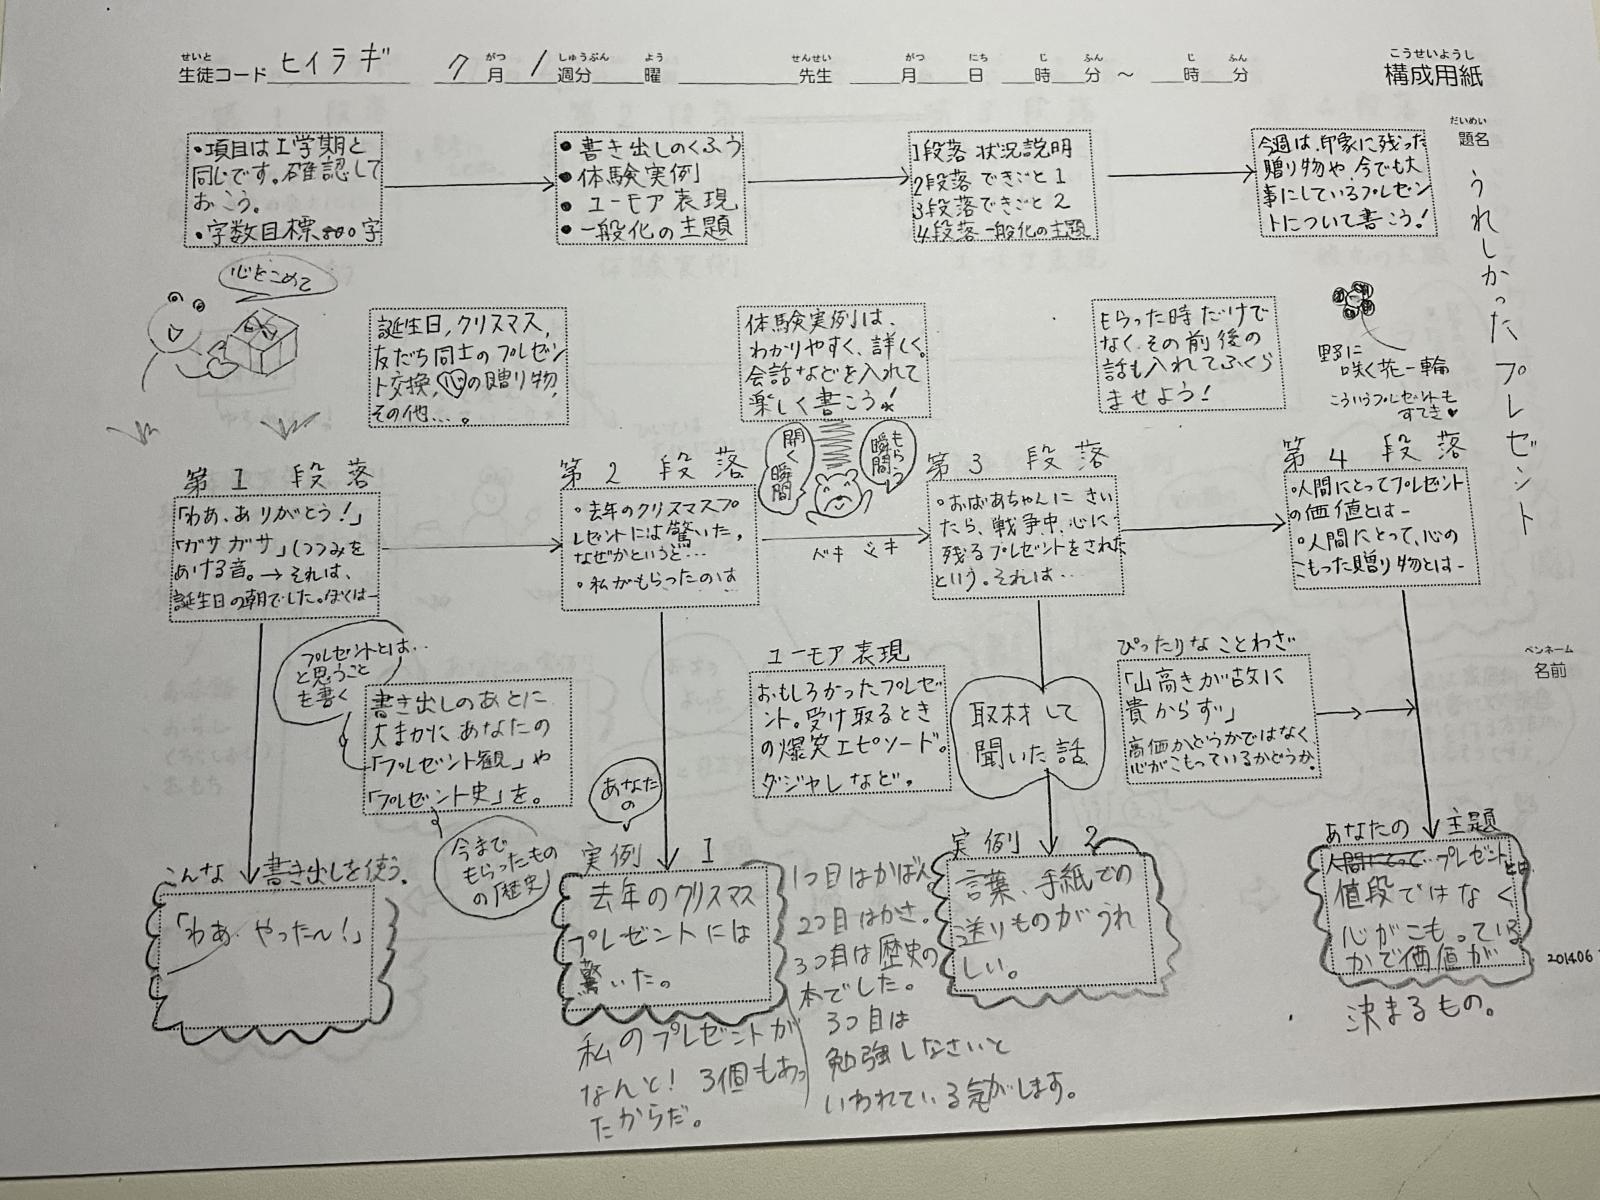 せいと
生徒コード ヒイラギ 7 月 1 週分 曜 先生 月 日 時 分 ～ 時 分
がつ しゅうぶん よう せんせい がつ にち じ ふん じ ふん
こうせいようし
構成用紙
だいめい
題名
うれしかったプレゼント
ペンネーム
名前
・項目はI学期と
同じです。確認して
おこう。
・字数目標800字
・書き出しのくふう
・体験実例
・ユーモア表現
・一般化の主題
1段落 状況説明
2段落 できごと1
3段落できごと2
4段落一般化の主題
今週は、印象に残った
贈り物や、今でも大
事にしているプレゼン
トについて書こう！
心をこめて
誕生日，クリスマス，
友だち同士のプレゼン
ト交換，心の贈り物，
その他…。
体験実例は、
わかりやすく、詳しく。
会話などを入れて
楽しく書こう！
もらった時だけで
なく、その前後の
話も入れてふくら
ませよう！
野に
咲く花一輪
こういうプレゼントも
すてき♥
第1段落
「わあ、ありがとう！」
「ガサガサ」(つつみを
あける音。→それは、
誕生日の朝でした。ぼくは―
第2段落
・去年のクリスマスプ
レゼントには驚いた。
なぜかというと…
・私がもらったのは
開く瞬間
もらう瞬間
第3段落
・おばあちゃんにきい
たら、戦争中、心に
残るプレゼントをされた
という。それは…
第4段落
・人間にとってプレゼント
の価値とは―
・人間にとって、心の
こもった贈り物とは―
プレゼントとは…
と思うこと
を書く
書き出しのあとに
大まかにあなたの
「プレゼント観」や
「プレゼント史」を。
今まで
もらったもの
の「歴史」
ユーモア表現
おもしろかったプレゼ
ント。受け取るとき
の爆笑エピソード。
ダジャレなど。
取材して
聞いた話
ぴったりなことわざ
「山高きが故に
貴からず」
高価かどうかではなく
心がこもっているかどうか。
こんな書き出しを使う。
「わあ、やったー！」
あなたの
実例 1
去年のクリスマス
プレゼントには
驚いた。
私のプレゼントが
なんと！3個もあっ
たからだ。
1つ目はかばん
2つ目はかさ。
3つ目は歴史の
本でした。
3つ目は
勉強しなさいと
いわれている気がします。
実例 2
言葉、手紙での
送りものがうれ
しい。
あなたの主題
人間にとって プレゼントとは
値段ではなく
心がこもっている
かで価値が
決まるもの。
2014.06